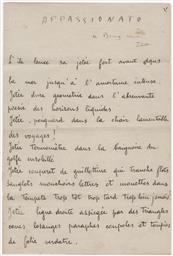 APPASSIONATO
S'il lance sa jetée fort avant dans
la mer jusqu'à l'amertume intense.
Jetée dure géometrie dans l'abreuvante
poésie des horizons liquides
Jetée, poignard dans la chair lamentable
des voyages!
Jetée Termomètre dans la baignoire du
golfe
Jetée couperet de guillotine qui tranche flots
sanglots mouchoirs lettres et mouettes dans
la Tempête Trop tôt trop tard Trop loin jamais!
Jetée ligne droite assiégée par des triangles
cones losanges paraphes coupoles et toupies
de folie verdatre.